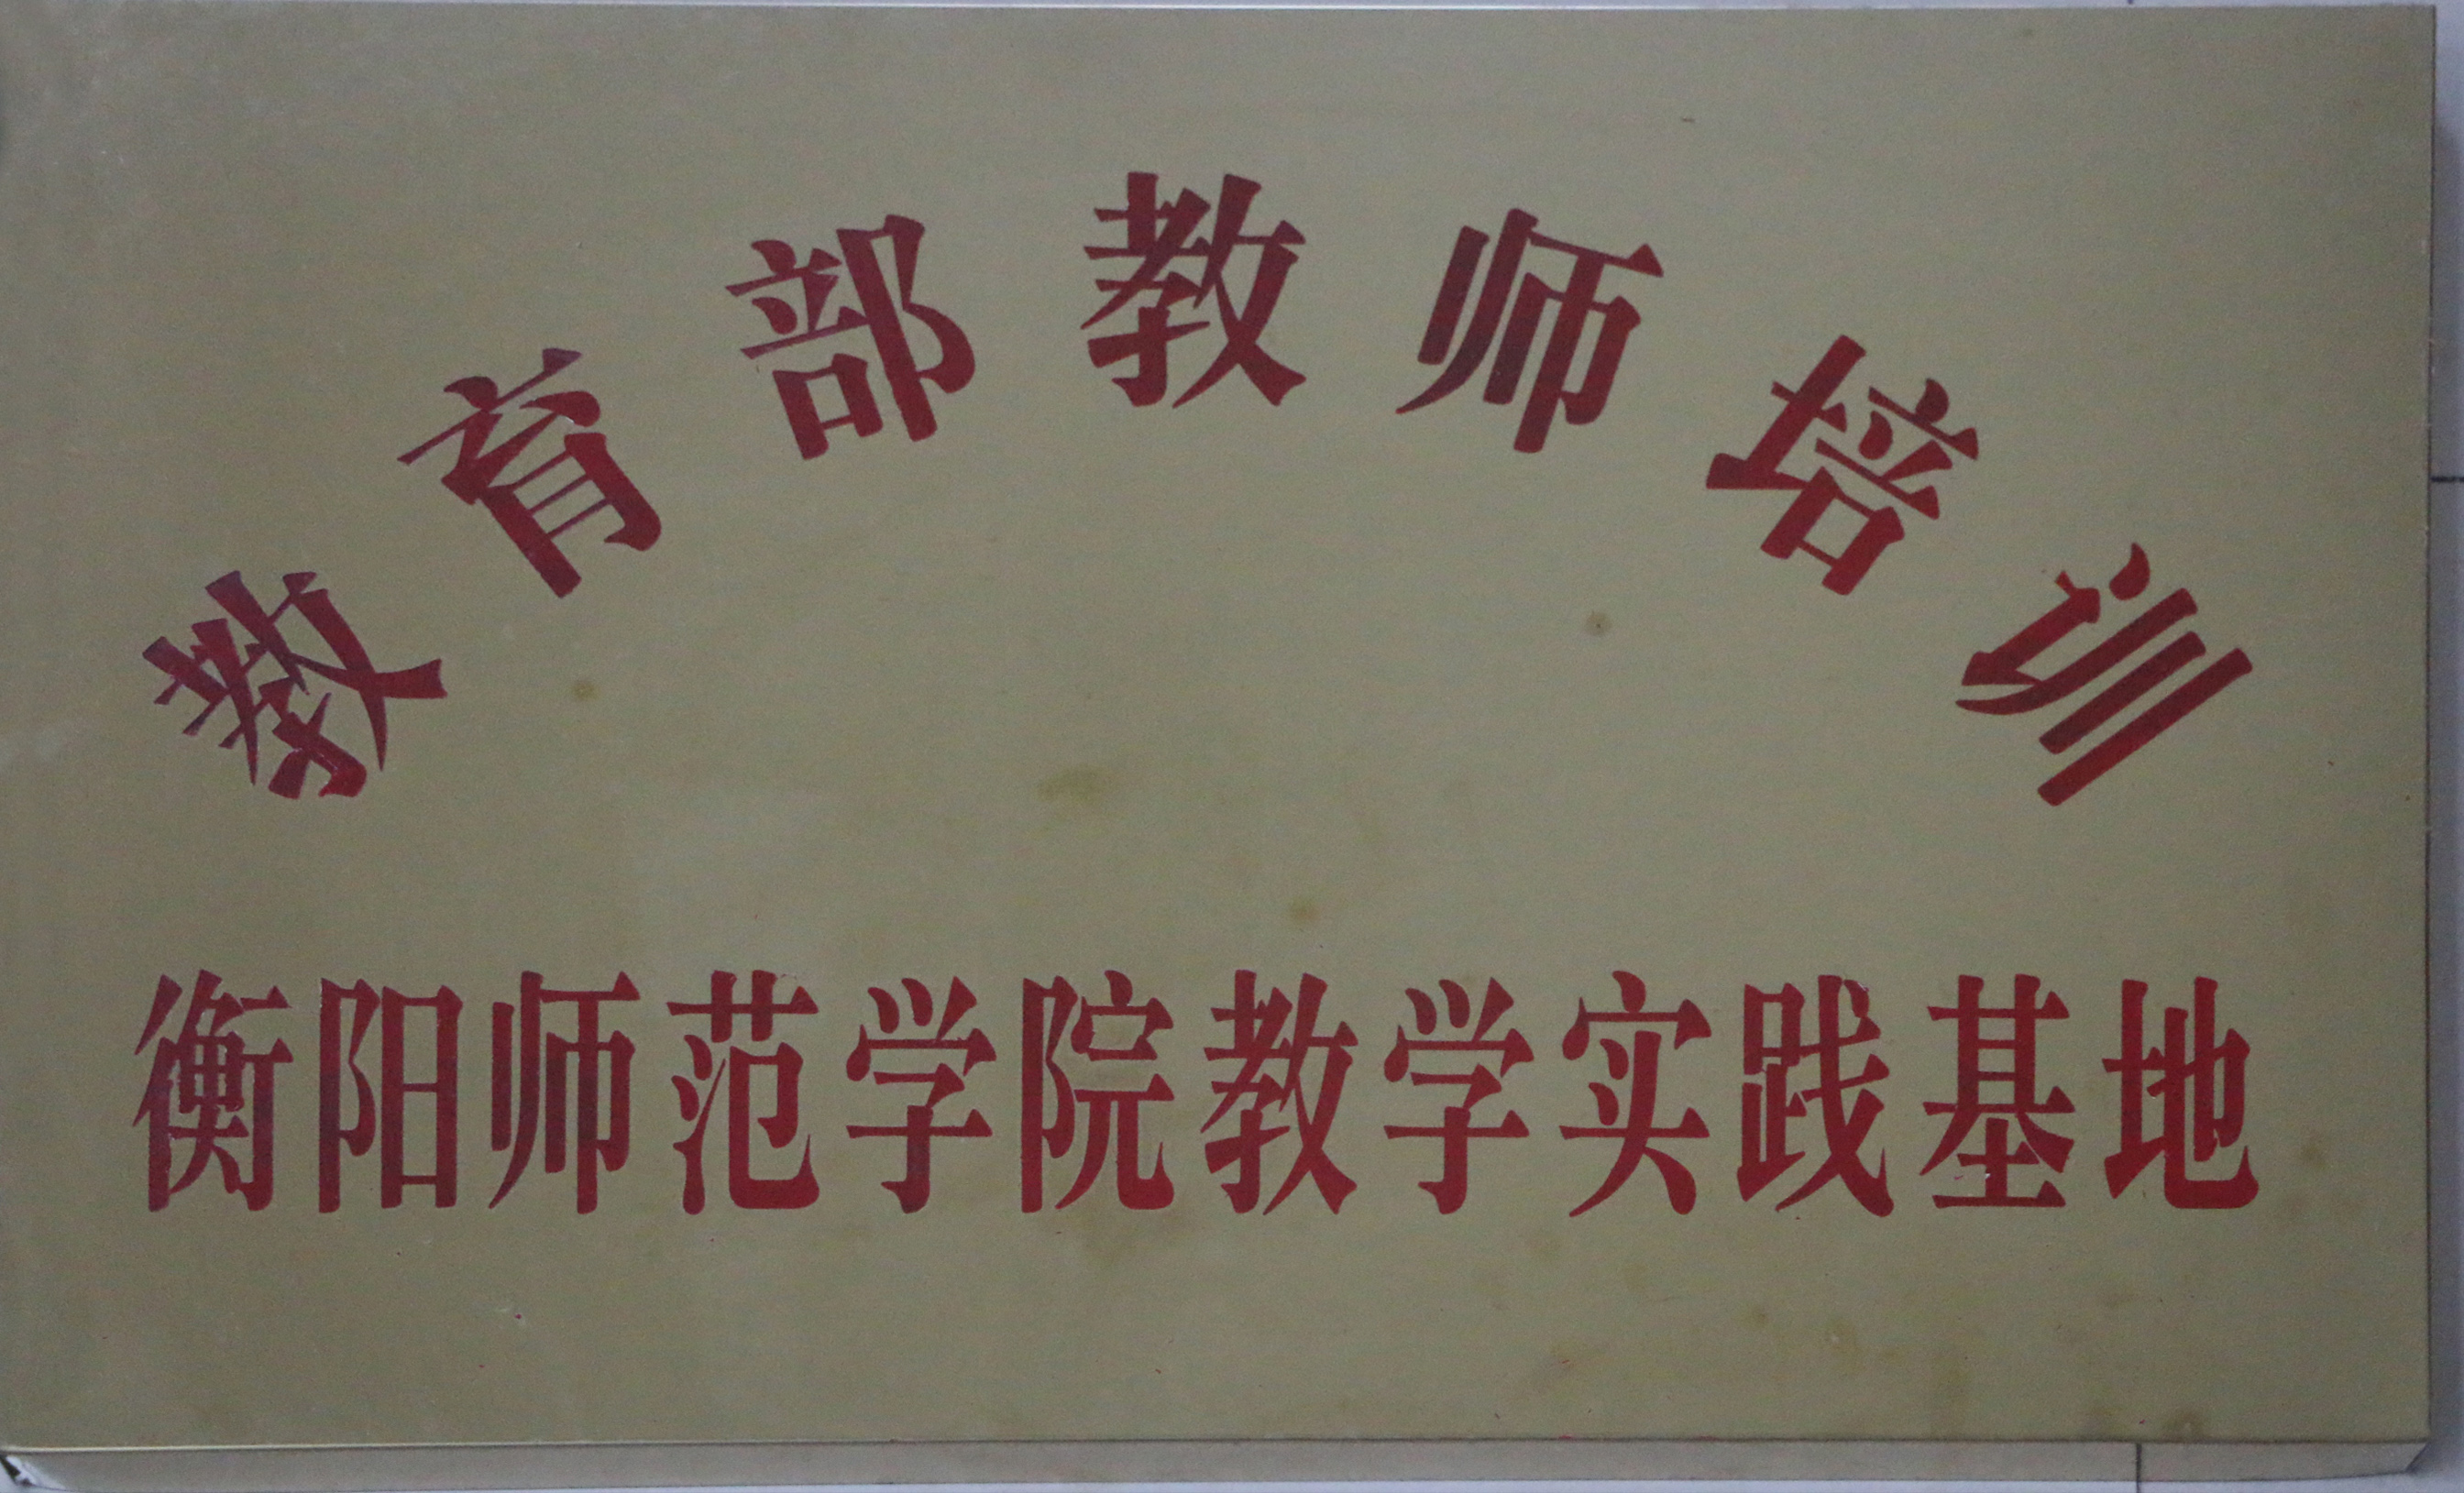 教育部教师培训
衡阳师范学院教学实践基地